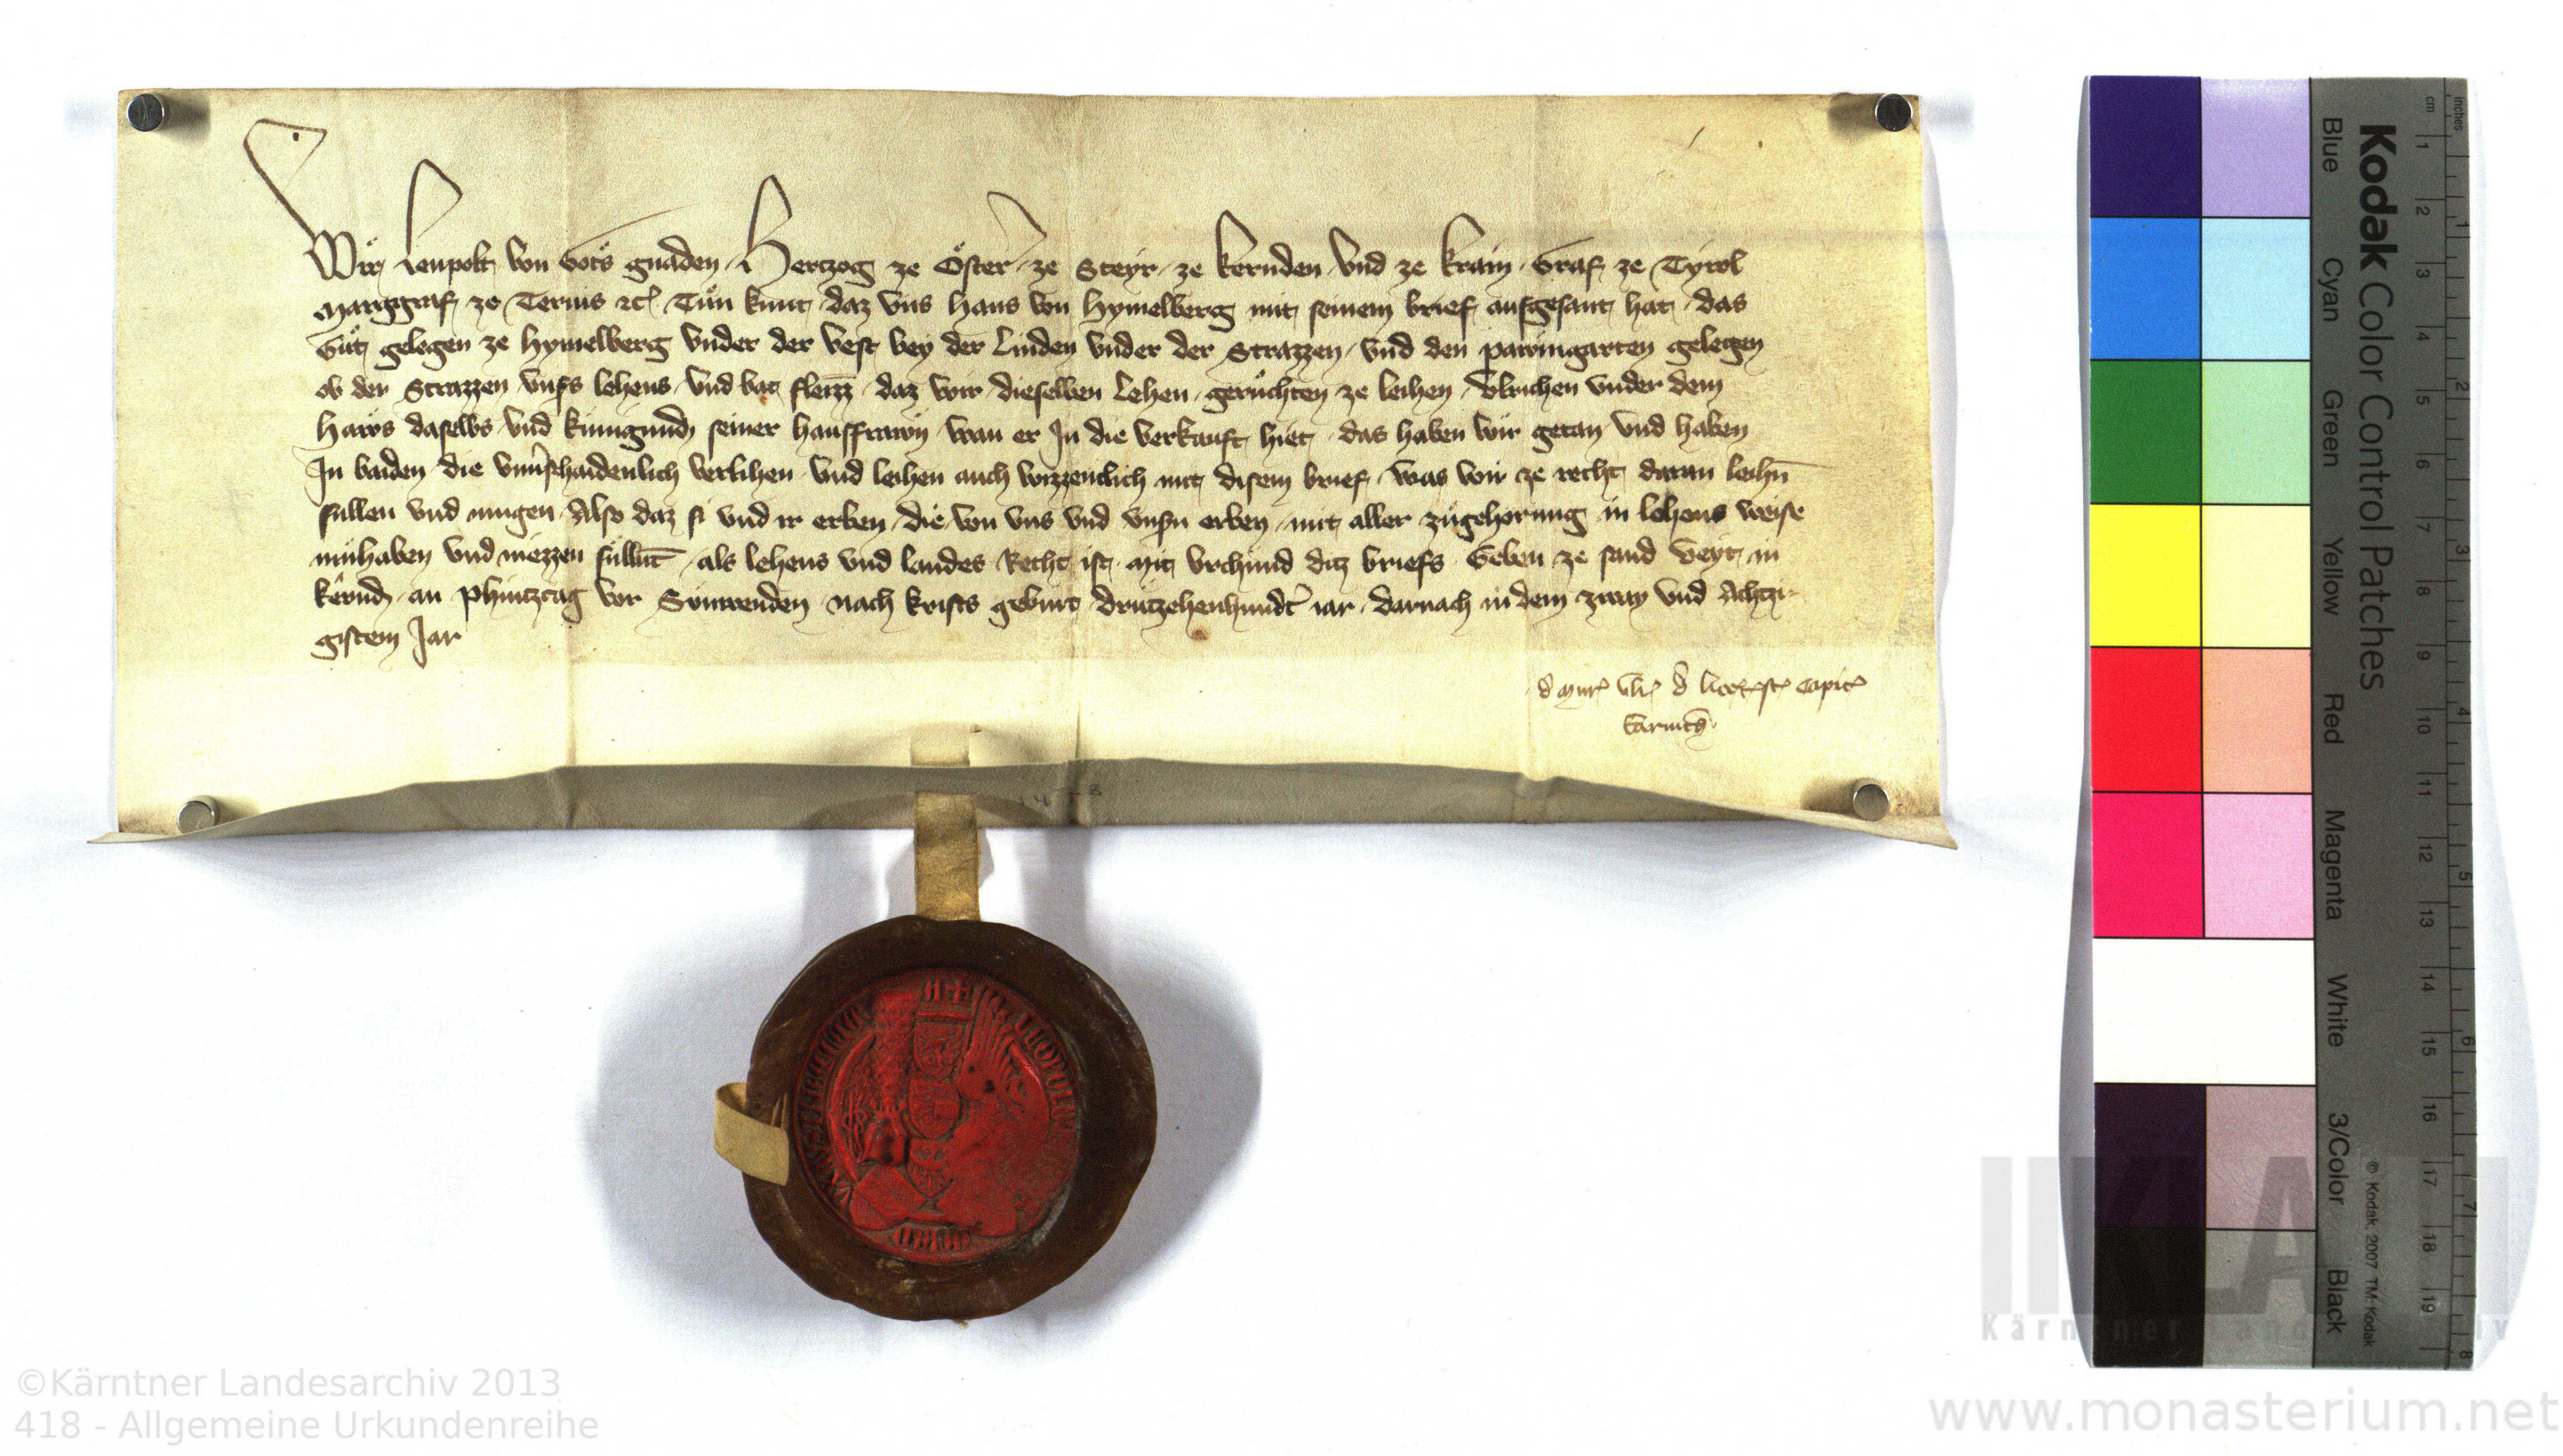 Wir Leupolt von Gots gnaden Hertzog ze Öster ze Steyr ze kernden vnd ze krain Graf ze Tyrol
Marggraf ze Teruis etc Tůn kunt daz vns Hans von Hymelberg mit seinem brief aufgesant hat das
Gůt gelegen ze Hymelberg vnder der vest bey der Linden vnder der Strazzen vnd den pawmgarten gelegen
ob der Strazzen vnss lehens vnd bat fleizz daz wir dieselben Lehen gerůchten ze leihen Vlrichen vnder dem
Haws daselbs vnd kunigund seiner hausfrawn wan er In die verkauft hiet das haben wir getan vnd haben
In baiden die vnuerschaidenlich verlihen vnd leihen auch wizzentlich mit disem brief was wir ze recht daran leihn
sullen vnd mugen Also daz si vnd ir erben die von vns vnd vnsn erben mit aller zůgehorung in lehens weise
innhaben vnd niezzen sůllnt als lehens vnd landes Recht ist Mit vrchund ditz briefs Geben ze sand Veyt in
kernd an Phintztag vor Sunwenden nach krists geburt drutzehenhundt iar darnach in dem zway vnd Achtzi
gistem Jar
d mgr vlr d capit
karinth
LEOPOLD
Kodak Color Control Patches
Blue Cyan Green Yellow Red Magenta White 3/Color Black
© Kodak, 2007 TM: Kodak
cm 1 2 3 4 5 6 7 8 9 10 11 12 13 14 15 16 17 18 19
inches 1 2 3 4 5 6 7 8
©Kärntner Landesarchiv 2013
418 - Allgemeine Urkundenreihe
www.monasterium.net